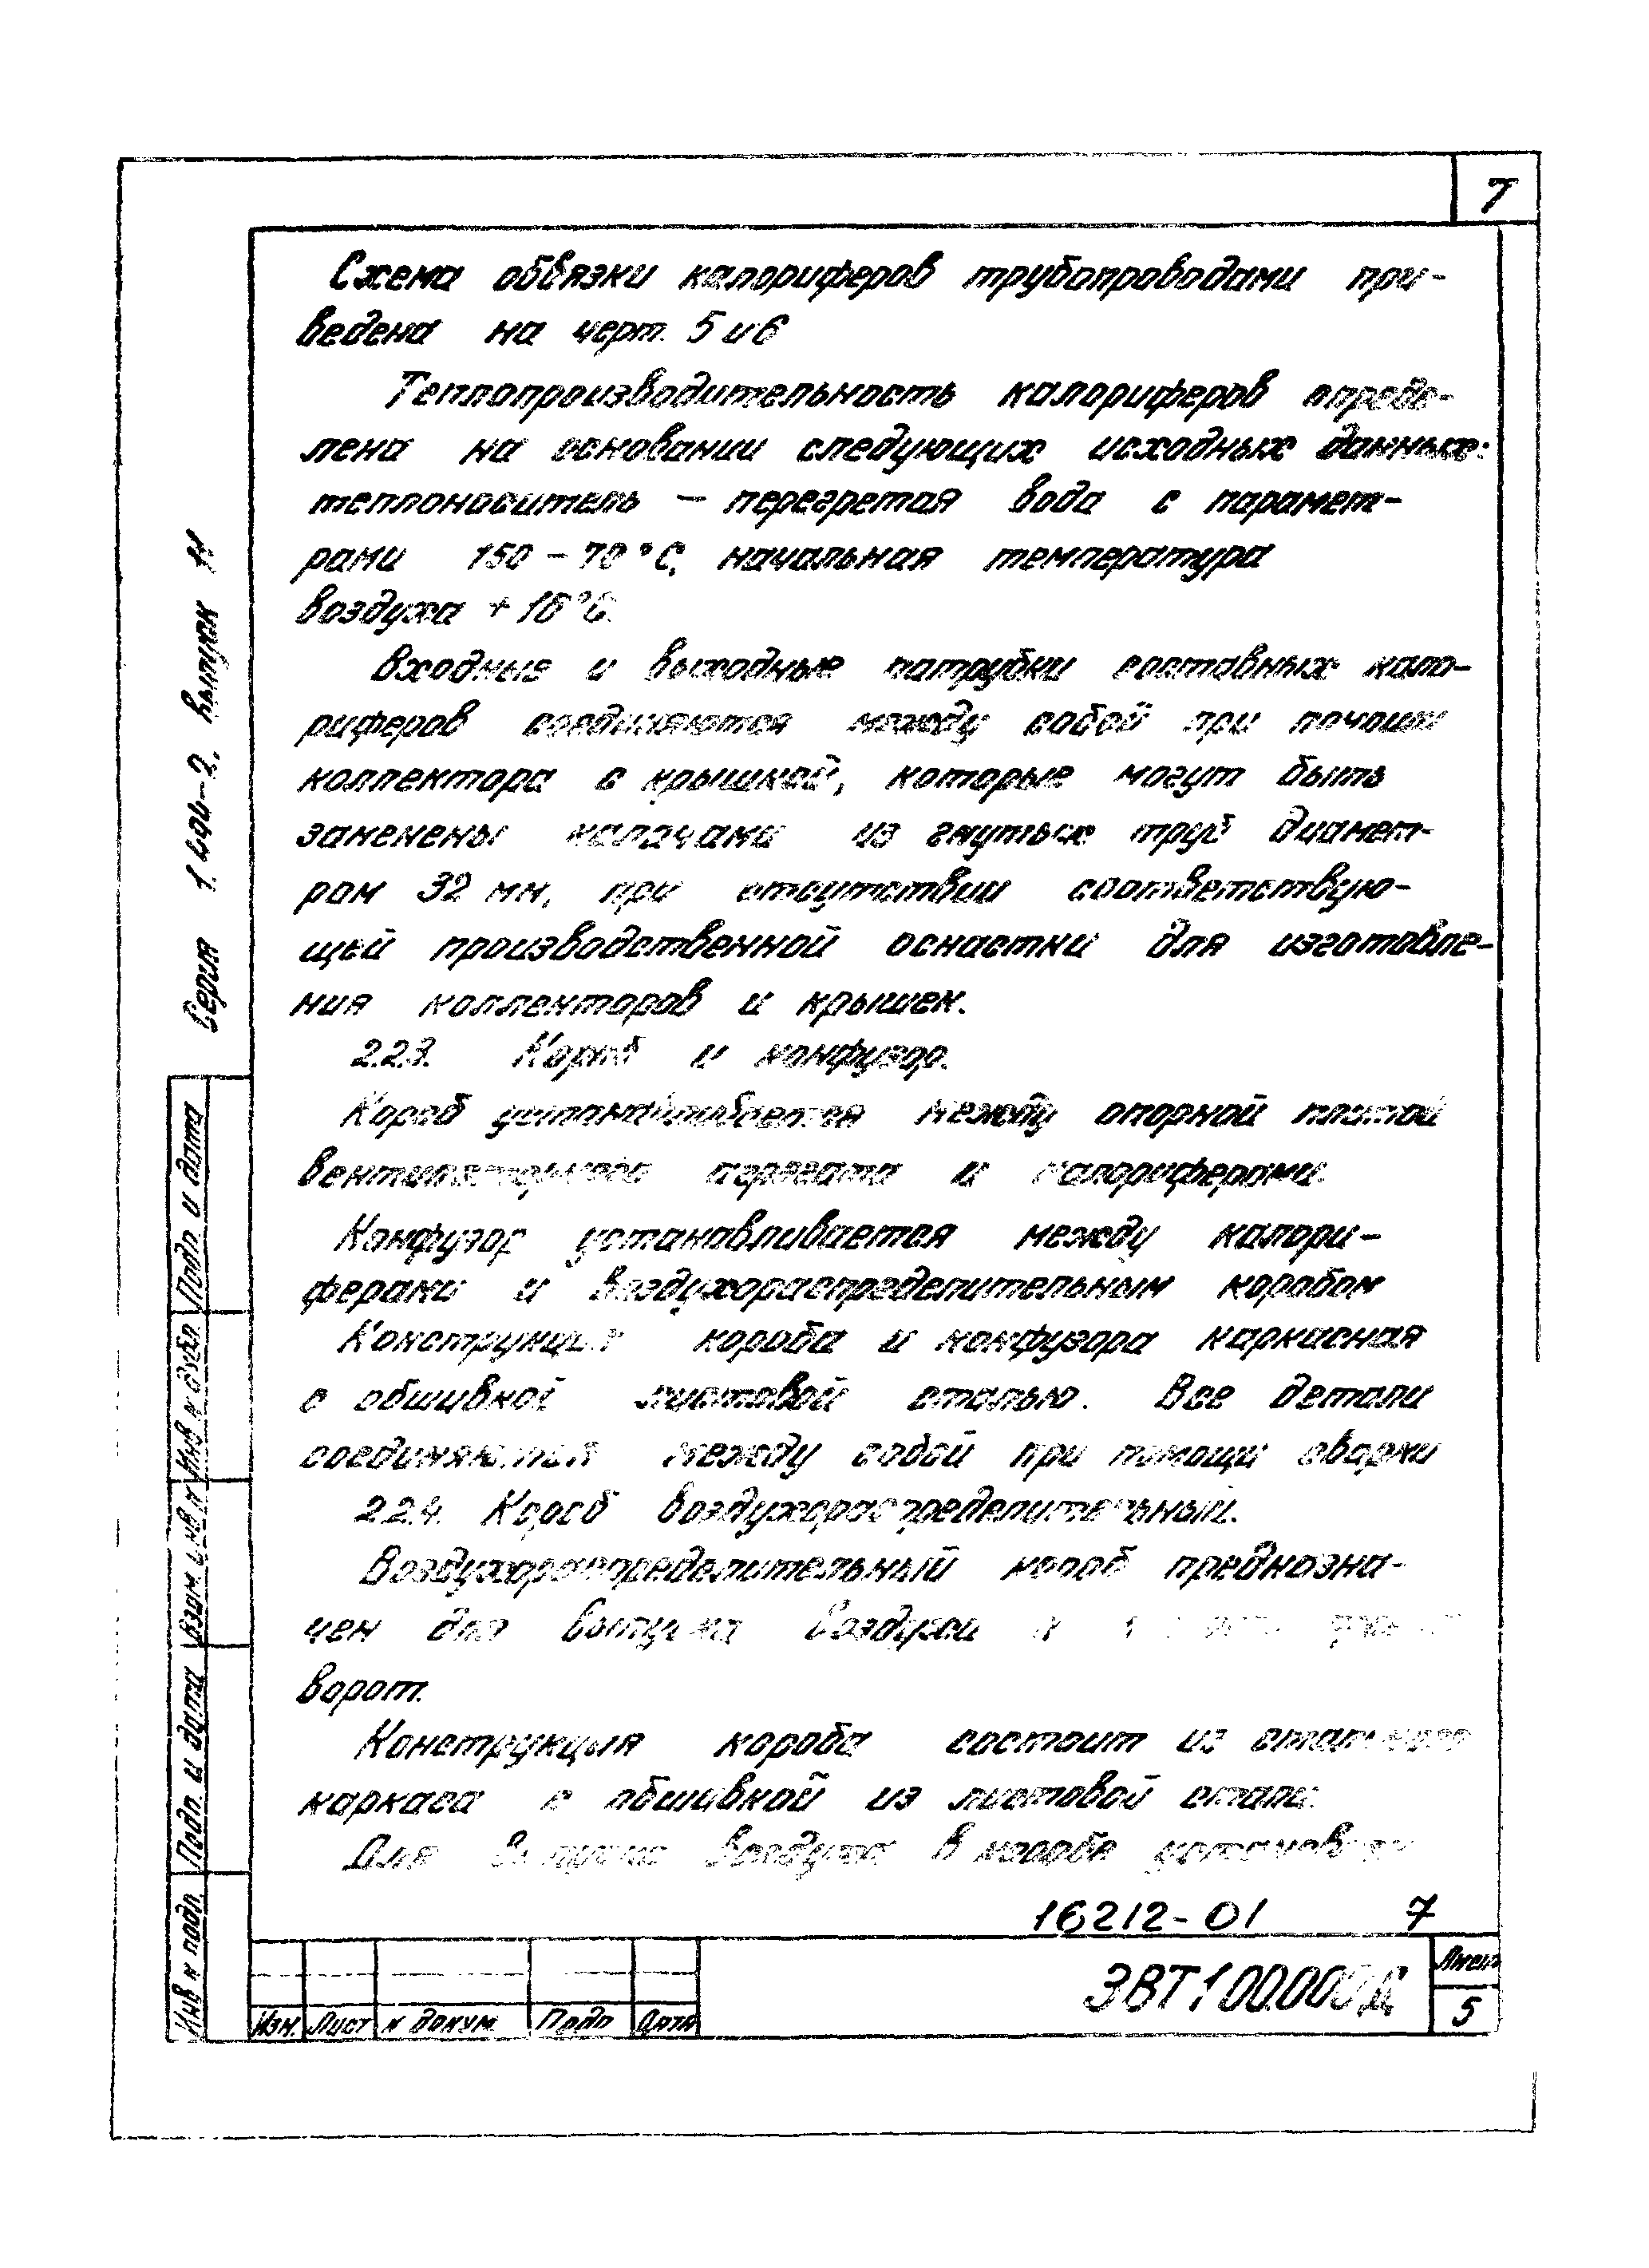 7
Схема обвязки калориферов трубопроводами при-
ведена на черт. 5 и 6
Теплопроизводительность калориферов опреде-
лена на основании следующих исходных данных:
теплоноситель – перегретая вода с парамет-
рами 150 – 70°С, начальная температура
воздуха + 16°С.
Входные и выходные патрубки составных кало-
риферов соединяются между собой при помощи
коллектора с крышкой, которые могут быть
заменены калачами из гнутых труб диамет-
ром 32 мм, при отсутствии соответствую-
щей производственной оснастки для изготовле-
ния коллекторов и крышек.
2.2.3. Короб и конфузор.
Короб устанавливается между опорной плитой
вентиляторного агрегата и калориферами.
Конфузор устанавливается между калори-
ферами и воздухораспределительным коробом
Конструкция короба и конфузора каркасная
с обшивкой листовой сталью. Все детали
соединяются между собой при помощи сварки
2.2.4. Короб воздухораспределительный.
Воздухораспределительный короб предназна-
чен для выпуска воздуха
ворот.
Конструкция короба состоит из стального
каркаса с обшивкой из листовой стали.
Для выпуска воздуха в коробе
16212-01 7
ЗВТ1.00.000Д
Лист
5
Изм. Лист № докум. Подп Дата
Серия 1.494-2. выпуск
Подп. и дата
Инв № дубл.
Взам. инв №
Подп. и дата
Инв № подл.